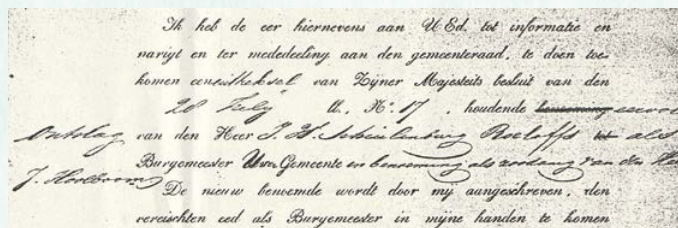 Ik heb de eer hiernevens aan U Ed. tot informatie en
narigt en ter mededeeling aan den gemeenteraad, te doen toe-
komen een uittreksel van Zijner Majesteits besluit van den
28 July ll. No. 17, houdende benoeming eervol
ontslag van den Heer J. W. Scheulenburg Roeloffs tot als
Burgemeester Uwer Gemeente en benoeming als zoodanig van den Heer
J. Hoolboom
De nieuw benoemde wordt door mij aangeschreven, den
vereischten eed als Burgemeester in mijne handen te komen